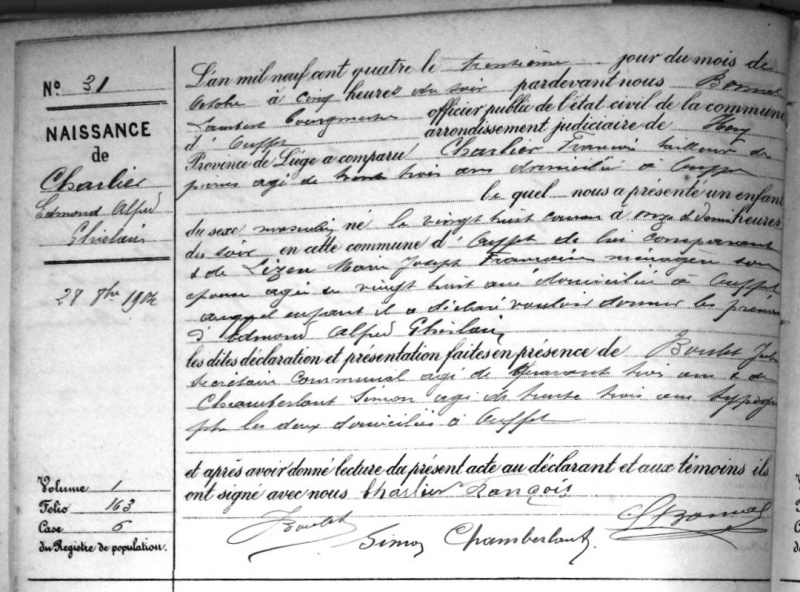 N° 31
NAISSANCE
de
Charlier
Edmond Alfred
Ghislain
28 8bre 1904
Volume 1
Folio 163
Case 6
du Registre de population.
L'an mil neuf cent quatre le trentième jour du mois de
Octobre à cinq heures du soir pardevant nous Bonnet
Lambert Bourgmestre officier public de l'état civil de la commune
d' Ouffet arrondissement judiciaire de Huy
Province de Liège a comparu Charlier François tailleur de
pierres agé de trente trois ans domicilié à Ouffet
le quel nous a présenté un enfant
du sexe masculin né le vingt huit courant à onze & demi heures
du soir en cette commune d' Ouffet de lui comparant
& de Lizen Marie Joseph Françoise ménagère son
épouse agée de vingt huit ans domiciliée à Ouffet
auquel enfant il a déclaré vouloir donner les prénoms
d' Edmond Alfred Ghislain
les dites déclaration et présentation faites en présence de Boulet Jules
secrétaire communal agé de quarante trois ans & de
Chamberlant Simon agé de trente trois ans
les deux domiciliés à Ouffet
et après avoir donné lecture du présent acte au déclarant et aux témoins ils
ont signé avec nous Charlier François
JBoulet Simon Chamberlant